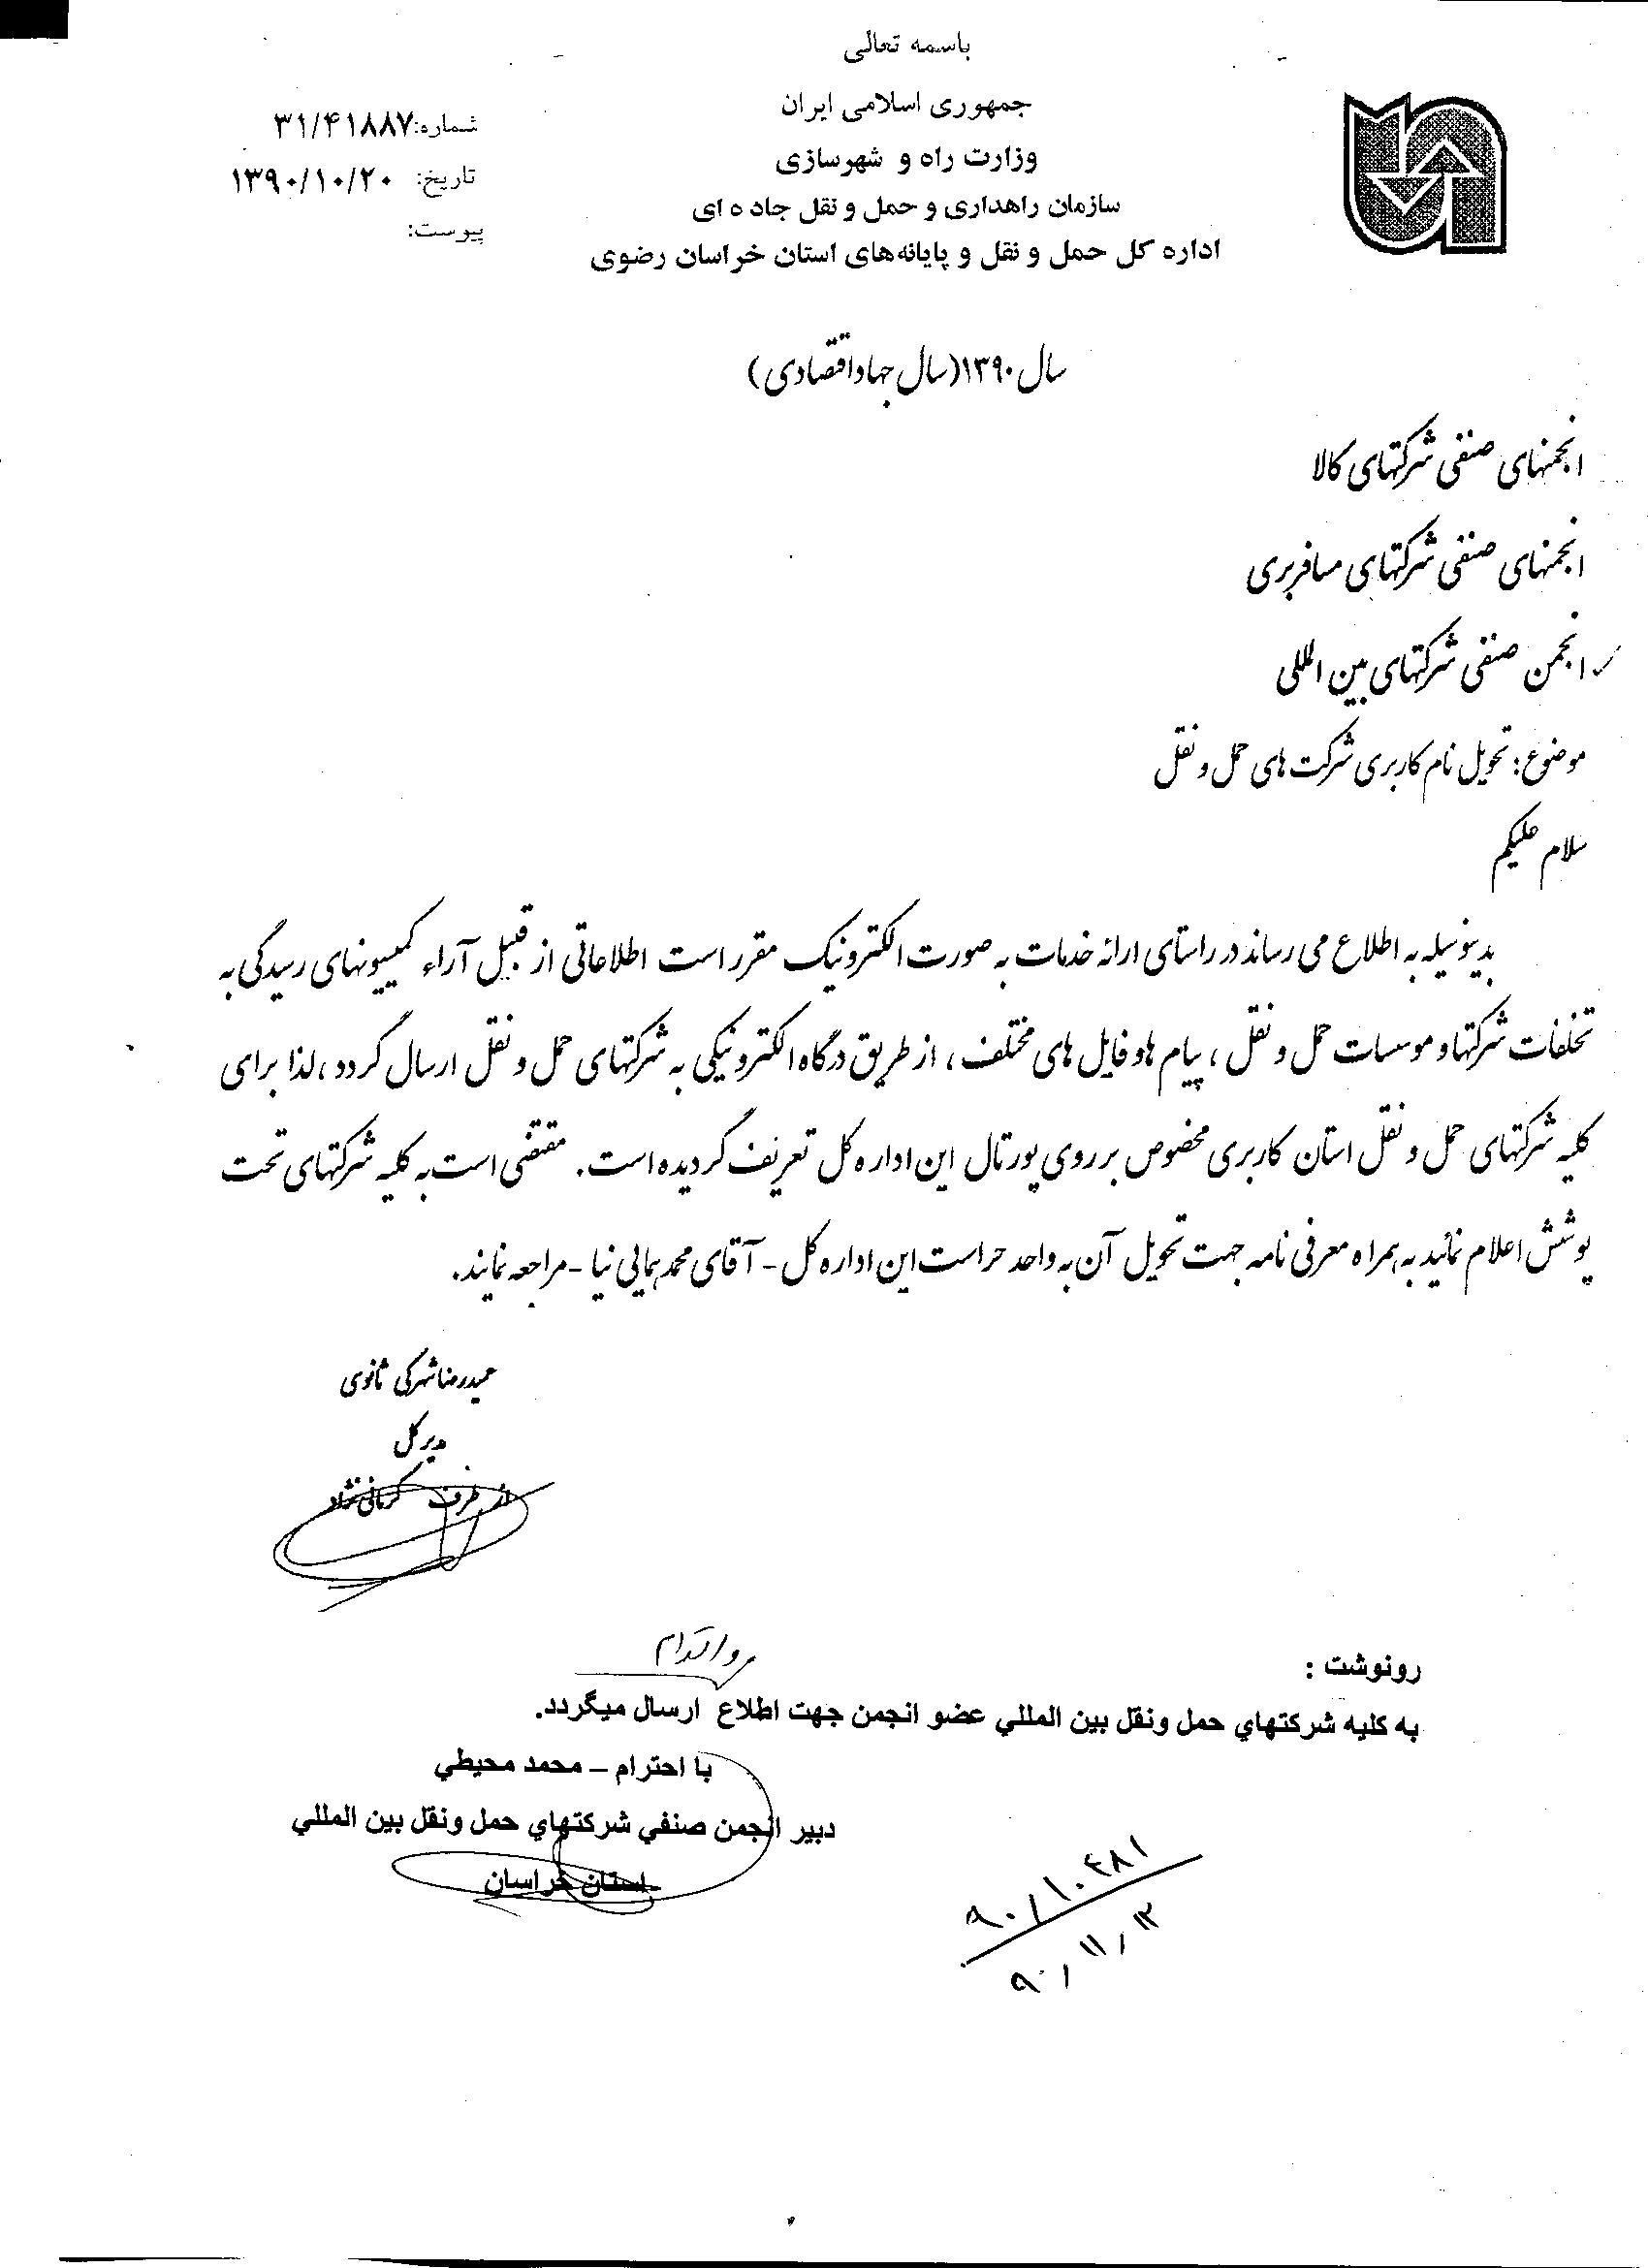 باسمه تعالی
جمهوری اسلامی ایران
وزارت راه و شهرسازی
سازمان راهداری و حمل و نقل جاده ای
اداره کل حمل و نقل و پایانه‌های استان خراسان رضوی
شماره: ۳۱/۴۱۸۸۷
تاریخ: ۱۳۹۰/۱۰/۲۰
پیوست:
سال ۱۳۹۰(سال جهاد اقتصادی)
انجمنهای صنفی شرکتهای کالا
انجمنهای صنفی شرکتهای مسافربری
انجمن صنفی شرکتهای بین المللی
موضوع: تحویل نام کاربری شرکت های حمل و نقل
سلام علیکم
بدینوسیله به اطلاع می رساند در راستای ارائه خدمات به صورت الکترونیک مقرر است اطلاعاتی از قبیل آراء کمیسیونهای رسیدگی به
تخلفات شرکتها و موسسات حمل و نقل ، پیام ها و فایل های مختلف ، از طریق درگاه الکترونیکی به شرکتهای حمل و نقل ارسال گردد ، لذا برای
کلیه شرکتهای حمل و نقل استان کاربری مخصوص بر روی پورتال این اداره کل تعریف گردیده است. مقتضی است به کلیه شرکتهای تحت
پوشش اعلام نمائید به همراه معرفی نامه جهت تحویل آن به واحد حراست این اداره کل - آقای محمد همایی نیا - مراجعه نمایند.
حمیدرضا شهرکی ثانوی
مدیر کل
از طرف کرمانی نژاد
اقدام
رونوشت :
به کلیه شرکتهاي حمل ونقل بین المللي عضو انجمن جهت اطلاع ارسال میگردد.
با احترام – محمد محیطي
دبیر انجمن صنفي شرکتهاي حمل ونقل بین المللي
استان خراسان
۹۰/۱۰۴۸۱
۹۰/۱۱/۱۲